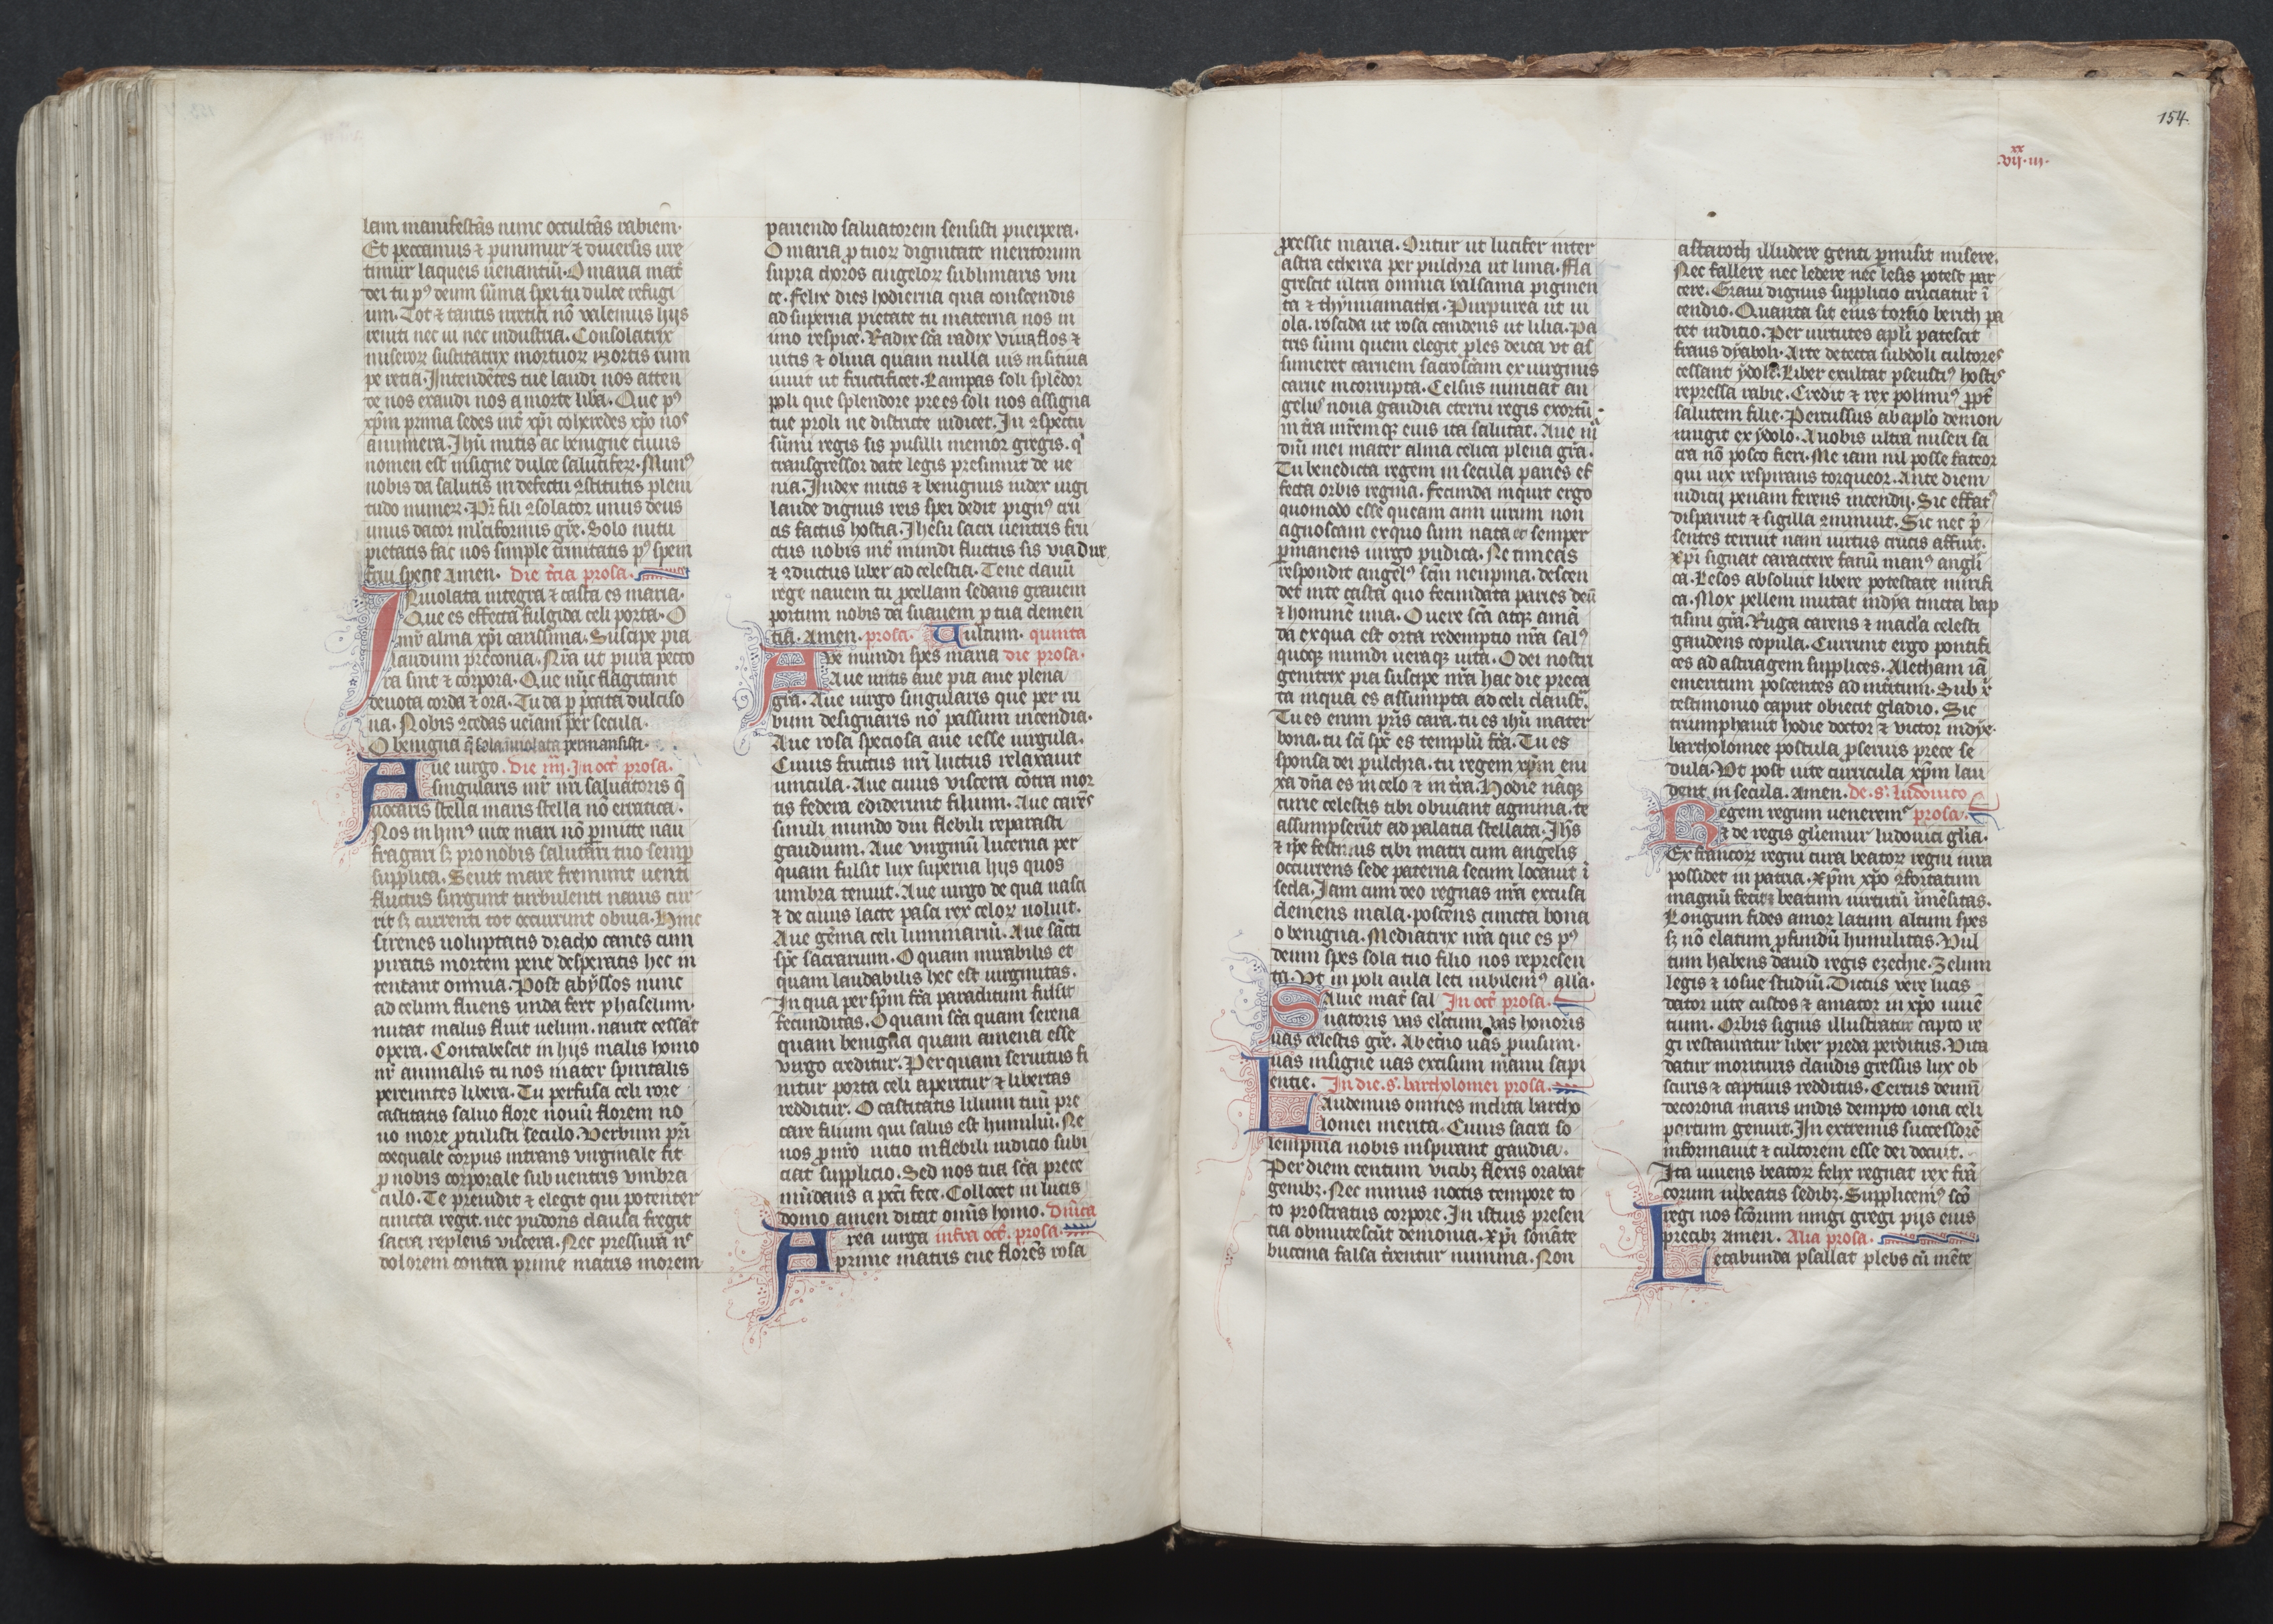 lam manifestãs nunc occultãs rabiem·
Et peccamus ⁊ punimur ⁊ diuersis ire
timur laqueis uenantiũ· O maria mat̃
dei tu pꝰ deum sũma spei tu dulce refugi
um· Tot ⁊ tantis irretiti nõ ualemus hijs
reniti nec ui nec industria· Consolatrix
miseroꝝ suscitatrix mortuoꝝ mortis rum
pe retia· Intendẽtes tue laudi nos atten
de nos exaudi nos a morte libã· Que pꝰ
xp̃m prima sedes int̃ xp̃i coheredes xp̃o nos
annumera· Ihũ mitis ac benigne cuius
nomen est insigne dulce salutiferꝝ· Munꝰ
nobis da salutis in defectu ꝯstitutis pleni
tudo muneꝝ· Pr̃ fili ꝯsolator unus deus
unus dator mlt̃iformis gr̃e· Solo nutu
pietatis fac nos simple trinitatis pꝰ spem
frui specie amen· Die t̃cia prosa·
Inuiolata integra ⁊ casta es maria·
Que es effecta fulgida celi porta· O
mr̃ alma xp̃i carissima· Suscipe pia
laudum preconia· Nr̃a ut pura pecto
ra sint ⁊ corpora· Que nũc flagitant
deuota corda ⁊ ora· Tu da ꝑ p̃cata dulciso
na· Nobis ꝯcedas ueniam per secula·
O benigna q̃ sola inuiolata permansisti·
Aue uirgo· Die iiij· In oct̃ prosa·
singularis mr̃ nr̃i saluatoris q̃
uocaris stella maris stella nõ erratica·
Nos in hiuꝰ uite mari nõ ꝑmitte nau
fragari sꝫ pro nobis salutari tuo semp̃
supplica· Seuit mare fremunt uenti
fluctus surgunt turbulenti nauis cur
rit sꝫ currenti tot occurrunt obuia· Hinc
sirenes uoluptatis dracho canes cum
piratis mortem pene desperatis hec in
tentant omnia· Post abyssos nunc
ad celum fluens unda fert phaselum·
nutat malus fluit uelum· naute cessat
opera· Contabescit in hijs malis homo
nr̃ animalis tu nos mater spiritalis
pereuntes libera· Tu perfusa celi rore
castitatis saluo flore nouũ florem no
uo more ꝓtulisti seculo· Verbum pr̃i
coequale corpus intrans uirginale fit
ꝓ nobis corporale sub uentris umbra
culo· Te preuidit ⁊ elegit qui potenter
cuncta regit· nec pudoris claustra fregit
sacra replens uiscera· Nec pressurã ñ
dolorem contra prime matris morem
pariendo saluatorem sensisti puerpera·
O maria ꝓ tuoꝝ dignitate meritorum
supra choros angeloꝝ sublimaris uni
ce· Felix dies hodierna qua conscendis
ad superna pietate tu materna nos in
imo respice· Radix sc̃a radix uiua flos ⁊
uitis ⁊ oliua quam nulla uis insitiua
iuuit ut fructificet· Lampas soli splẽdor
poli que splendore prees soli nos assigna
tue proli ne districte iudicet· In ꝯspectu
sũmi regis sis pusilli memor gregis· q̃
transgressor date legis presumit de ue
nia· Iudex mitis ⁊ benignus iudex iugi
laude dignus reis spei dedit pignꝰ cru
cis factus hostia· Ihesu sacri uentris fru
ctus nobis int̃ mundi fluctus sis uia dux
⁊ ꝯductus liber ad celestia· Tene clauũ
rege nauem tu ꝓcellam sedans grauem
portum nobis da suauem ꝓ tua clemen
tia· Amen· prosa· Uultum· quinta
Ave mundi spes maria die prosa·
Aue mitis aue pia aue plena
gr̃a· Aue uirgo singularis que per ru
bum designaris nõ passum incendia·
Aue rosa speciosa aue iesse uirgula·
Cuius fructus nr̃i luctus relaxauit
uincula· Aue cuius uiscera cõtra mor
tis federa ediderunt filium· Aue carẽs
simili mundo diu flebili reparasti
gaudium· Aue uirginũ lucerna per
quam fulsit lux superna hijs quos
umbra tenuit· Aue uirgo de qua nasci
⁊ de cuius lacte pasci rex celoꝝ uoluit·
Aue gẽma celi luminariũ· Aue sãcti
sp̃c sacrarium· O quam mirabilis et
quam laudabilis hec est uirginitas·
In qua per sp̃m fc̃a paraclitum fulsit
fecunditas· O quam sc̃a quam serena
quam benigna quam amena esse
uirgo creditur· Per quam seruitus fi
nitur porta celi aperitur ⁊ libertas
redditur· O castitatis lilium tuũ pre
care filium qui salus est humiliũ· Ne
nos ꝓ nr̃o uitio in flebili iudicio subi
ciat supplicio· Sed nos tua sc̃a prece
mũdans a pcc̃i fece· Collocet in lucis
domo amen dicat omĩs homo· Dñica
Area uirga infra oct̃· prosa·
prime matris eue florẽs rosa
ꝓcessit maria· Oritur ut lucifer inter
astra etherea per pulchra ut luna· Fla
grescit ultra omnia balsama pigmen
ta ⁊ thymiamatha· Purpurea ut ui
ola· roscida ut rosa candens ut lilia· Pa
tris sũmi quem elegit ꝓles deica ut as
sumeret carnem sacroscãm ex uirginis
carne incorrupta· Celsus nunciat an
gelus noua gaudia eterni regis exortũ
in t̃ra mr̃emqꝫ eius ita salutat· Aue
dñi mei mater alma celica plena gr̃a·
Tu benedicta regem in secula paries ef
fecta orbis regina· Fecunda inquit ergo
quomodo esse queam cum uirum non
agnoscam ex quo sum nata et semper
ꝑmanens uirgo pudica· Ne timeas
respondit angelꝰ scm̃ neupma· descen
det in te casta quo fecundata paries deũ
⁊ hominẽ una· O uere sc̃a atqꝫ amã
da ex qua est orta redemptio nr̃a salꝰ
quoqꝫ mundi ueraqꝫ uita· O dei nostri
genitrix pia suscipe nr̃a hac die preca
ta in qua es assumpta ad celi claustr̃·
Tu es enim pr̃is cara· tu es ihũ mater
bona· tu sc̃i sp̃c es templũ fc̃a· Tu es
sponsa dei pulchra· tu regem xp̃m eni
xa dñã es in celo ⁊ in t̃ra· Hodie nãqꝫ
curie celestis tibi obuiant agmina· te
assumpserũt ad palatia stellata· Ihs̃
⁊ ip̃e festinus tibi matri cum angelis
occurrens sede paterna secum locauit ĩ
secla· Iam cum deo regnas nr̃a excusa
clemens mala· poscens cuncta bona
o benigna· Mediatrix nr̃a que es pꝰ
deum spes sola tuo filio nos represen
ta· Vt in poli aula leti iubilemꝰ all̃a·
Salue mat̃ sal In oct̃ prosa·
uatoris uas elc̃tum uas honoris
uas celestis gr̃e· Ab et̃no uas ꝓuisum·
uas insigne uas excisum manu sapi
entie· In die· s̃· bartholomei prosa·
Laudemus omnes inclita bartho
lomei merita· Cuius sacra so
lempnia nobis inspirant gaudia·
Per diem centum uicibꝫ flexis orabat
genibꝫ· Nec minus noctis tempore to
to prostratus corpore· In istius presen
tia obmutescũt demonia· Xp̃i sonãte
buccina falsa t̃rentur numina· Non
154
xx
·vij·iij·
astaroth illudere genti ꝑmisit misere·
Nec fallere nec ledere nec lesis potest par
cere· Graui dignus supplicio cruciatur ĩ
cendio· Quanta sit eius torsio berith pa
tet iuditio· Per uirtutes apl̃i patescit
fraus dyaboli· Arte detecta subdoli cultores
cessant ydoli· Liber exultat pseustiꝰ hostis
repressa rabie· Credit ⁊ rex polimiꝰ ꝓpt̃
salutem filie· Percussus ab apl̃o demon
mugit ex ydolo· A uobis ultra miseri sa
cra nõ posco fieri· Me iam nil posse fateor
qui uix respirans torqueor· Ante diem
iudicij penam ferens incendij· Sic effatꝰ
disparuit ⁊ sigilla ꝯminuit· Sic nec p̃
sentes terruit nam uirtus crucis affuit·
Xp̃i signat caractere fanũ manꝰ angli
ca· Lesos absoluit libere potestate mirifi
ca· Mox pellem mutat indya tincta bap
tismi gr̃a· Ruga carens ⁊ macl̃a celesti
gaudens copula· Currunt ergo pontifi
ces ad astragem supplices· Aletham iã
emeritum poscentes ad int̃itum· Sub x̃
testimonio caput obiecit gladio· Sic
triumphauit hodie doctor ⁊ uictor indye·
bartholomee postula ꝓ seruis prece se
dula· Vt post uite curricula xp̃m lau
dent in secula· amen· de· s̃· ludouico
Regem regum ueneremꝰ prosa·
⁊ de regis gl̃iemur ludouici gl̃ia·
Ex francoꝝ regni cura beatoꝝ regni iura
possidet in patria· Xp̃m xp̃o ꝯfortatum
magnũ fecit beatum uirtutũ ĩmẽsitas·
Longum fides amor latum altum spes
sꝫ nõ elatum ꝓfundũ humilitas· Vul
tum habens dauid regis ezechie· Zelum
legis ⁊ iosue studiũ· Dictus uere lucis
dator uite custos ⁊ amator in xp̃o uiuẽ
tium· Orbis signis illustratur capto re
gi restauratur liber preda perditus· Vita
datur morituris claudis gressus lux ob
scuris ⁊ captiuis redditus· Certus deum̃
decorona maris undis dempto iona celi
portum genuit· In extremis successorẽ
informauit ⁊ cultorem esse dei docuit·
Ita uiuens beatoꝝ felix regnat rex frã
corum in beatis sedibꝫ· Supplicemꝰ sc̃o
regi nos sc̃orum iungi gregi pijs eius
precibꝫ amen· Alia prosa·
Letabunda psallat plebs cũ mẽte